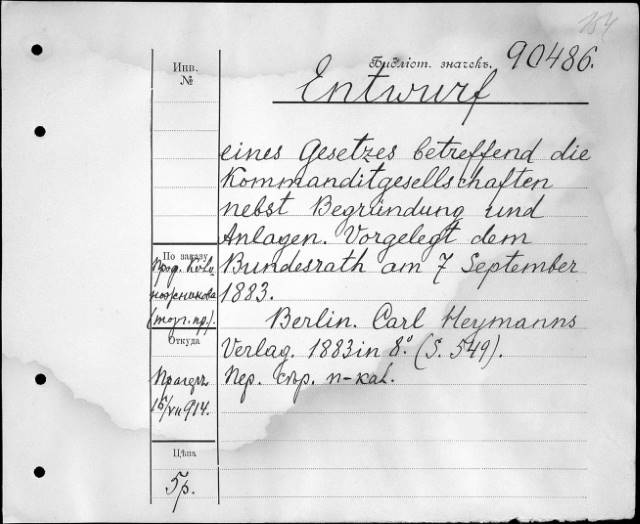 164
Библіот. значекъ. 90486.
Инв.
№
Entwurf
eines Gesetzes betreffend die
Kommanditgesellschaften
nebst Begründung und
Anlagen. Vorgelegt dem
Bundesrath am 7 September
1883.
Berlin. Carl Heymanns
Verlag. 1883 in 8° (S. 549).
Пер. сър. п-каl.
По заказу
Прод. Колу
(торг. пр.).
Откуда
Прагеръ
15/VII 914.
Цѣна
5р.